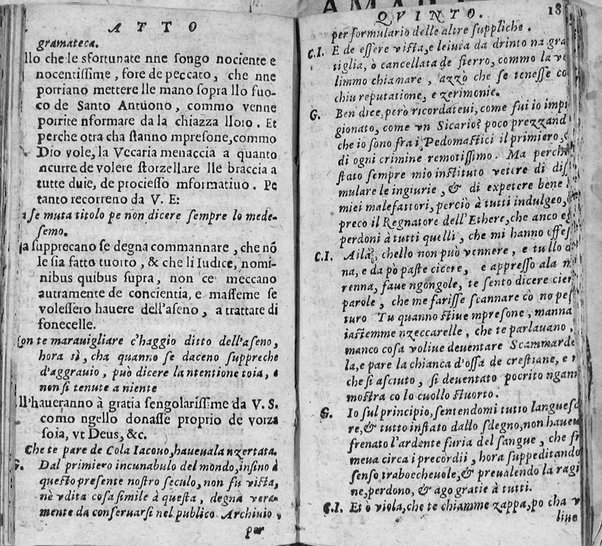 ATTO
gramateca.
llo che le sfortunate nne songo nociente e
nocentissime, fore de peccato, che nne
porriano mettere lle mano sopra llo fuo-
co de Santo Antuono, commo venne
porrite nformare da la chiazza lloro. Et
perche otra cha stanno mpresone, commo
Dio vole, la Vecaria menaccia a quanto
ncurre de volere storzellare lle braccia a
tutte duie, de prociesso mformatiuo. Pe
tanto recorreno da V. E:
se muta titolo pe non dicere sempre lo mede-
semo.
supprecano se degna commannare, che nõ
le sia fatto tuorto, & che li Iudice, nomi-
nibus quibus supra, non ce meccano
autramente de concientia, e masseme se
volessero hauere dell'aseno, a trattare di
fonecelle.
te marauigliare c'haggio ditto dell'aseno,
hora sì, cha quanno se daceno suppreche
d'aggrauio, può dicere la ntentione toia, e
non si tenute a niente
ll'haueranno à gratia sengolarissime da V. S.
como ngello donasse proprio de vorza
soia, vt Deus, &c.
Che te pare de Cola Iacouo, haueuala nzertata.
G. Dal primiero incunabulo del mondo, insino à
questo presente nostro seculo, non fu vista,
nè vdita cosa simile à questa, degna vera-
mente da conseruarsi nel publico Archiuio,
per
QVINTO. 18
per formulario delle altre suppliche.
C.I. E de essere vista, e leiuta da drinto na gra
tiglia, ò cancellata de fierro, commo la vo
limmo chiamare, azzò che se tenesse co
chiu reputatione, e zerimonie.
G. Ben dice, però ricordateui, come fui io impri
gionato, come vn Sicario? poco prezzand
che io sono fra i Pedomastici il primiero, e
di ogni crimine remotissimo. Ma perche
stato sempre mio instituto vetere di dis
mulare le ingiurie, & di expetere bene i
miei malefattori, perciò à tutti indulgeo,
preco il Regnatore dell'Ethere, che anco eg
perdoni à tutti quelli, che mi hanno offes
C.I. Aila, chello non può vennere, e tu llo
na, e da pò paste cicere, e appresso ala n
renna, faue ngongole, te sento dicere cier
parole, che me farisse scannare cò no pes
turo Tu quanno stiue mpresone, manna
iastemme nzeccarelle, che te parlauano,
manco cosa voliue deuentare Scammarde
la, e pare la chianca d'ossa de crestiane, e
che si asciuto, si deuentato pocrito ngan
mostra co lo cuollo stuorto.
G. Io sul principio, sentendomi tutto languesc
re, & tutto instiato dallo sdegno, non haueu
frenato l'ardente furia del sangue, che
meua circa i precordii, hora suppeditando
senso, traboccheuole, & preualendo la ragi
ne, perdono, & ago gratie à tutti.
C.I. Et ò viola, che te chiamme zappa, po cha v
liue